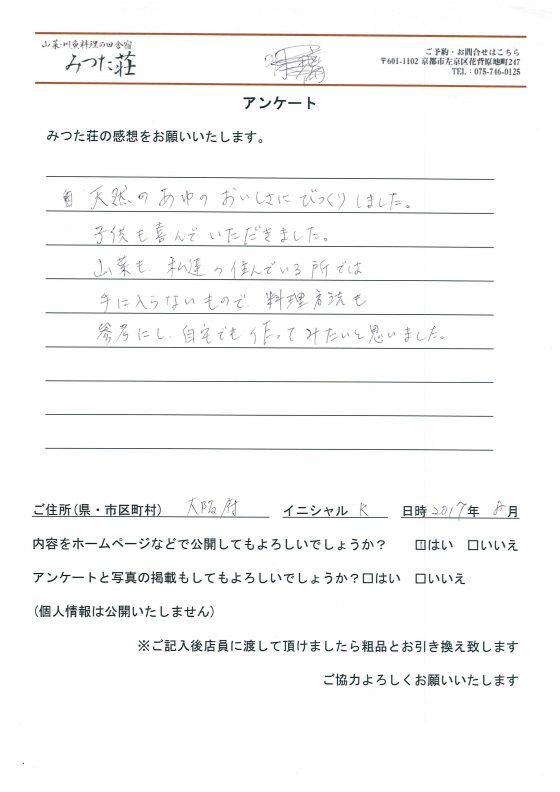 山菜・川魚料理の田舎宿
みつた荘
ご予約・お問合せはこちら
〒601-1102 京都市左京区花背原地町247
TEL：075-746-0125
アンケート
みつた荘の感想をお願いいたします。
天然のあゆのおいしさにびっくりしました。
子供も喜んでいただきました。
山菜も、私達の住んでいる所では
手に入らないもので、料理方法も
参考にし、自宅でも作ってみたいと思いました。
ご住所(県・市区町村) 大阪府 イニシャル K 日時 2017年 8月
内容をホームページなどで公開してもよろしいでしょうか？ ☐はい ☐いいえ
アンケートと写真の掲載もしてもよろしいでしょうか？☐はい ☐いいえ
(個人情報は公開いたしません)
※ご記入後店員に渡して頂けましたら粗品とお引き換え致します
ご協力よろしくお願いいたします